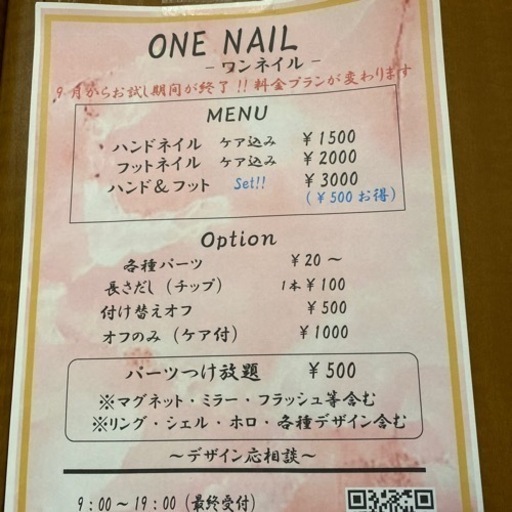 ONE NAIL
- ワンネイル -
9月からお試し期間が終了!!料金プランが変わります
MENU
ハンドネイル ケア込み ¥1500
フットネイル ケア込み ¥2000
ハンド&フット Set!! ¥3000
(¥500お得)
Option
各種パーツ ¥20~
長さだし(チップ) 1本¥100
付け替えオフ ¥500
オフのみ(ケア付) ¥1000
パーツつけ放題 ¥500
※マグネット・ミラー・フラッシュ等含む
※リング・シェル・ホロ・各種デザイン含む
~デザイン応相談~
9:00~19:00(最終受付)